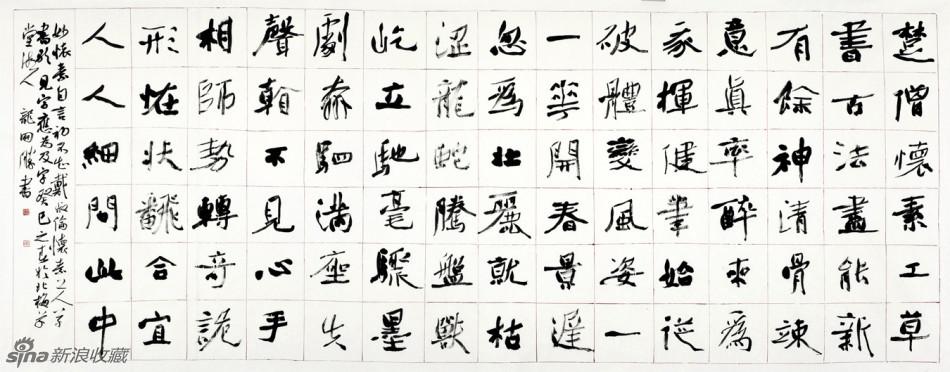 楚僧懷素工草
書古法盡能新
有餘神清骨竦
意真率醉來為
我揮健筆始從
破體變風姿一
一花開春景遲
忽為壯麗就枯
澀龍蛇騰盤獸
屹立馳毫驟墨
劇奔駟滿座失
聲看不見心手
相師勢轉奇詭
形恠狀翻合宜
人人細問此中
妙懷素自言初不知戴叔倫懷素上人草
書歌 見字應為及字癸巳之春於北梅草
堂海人 龍開勝書
sina新浪收藏